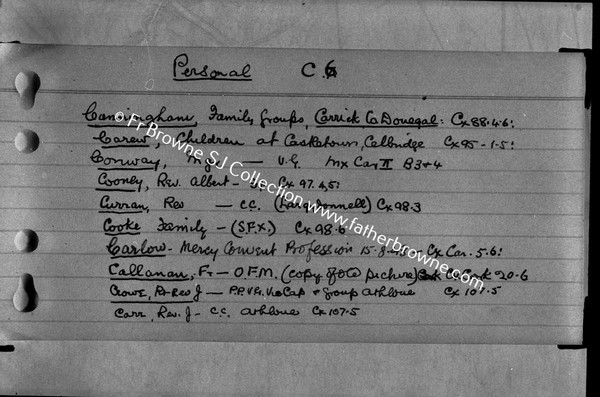 Personal C.6
Cunningham, Family Groups, Carrick Co Donegal: Cx 88.4.6:
Carew, Children at Castletown, Celbridge Cx 95-1.5:
Conway, Mgr — V.G. Mx Car II B3+4
Cooney, Rev. Albert - Cx 97.4,5:
Curran, Rev — C.C. Cx 98.3
Cooke Family - (S.F.X.) Cx 98.6
Carlow - Mercy Convent Profession Cx Car. 5.6:
Callanan, Fr — O.F.M. (copy of old picture) Cork 20.6
Crowe, Rt Rev J — P.P. V.G. Vic Cap + group Athlone Cx 107.5
Carr, Rev. J - C.C. Athlone Cx 107.5
© Fr Browne SJ Collection www.fatherbrowne.com